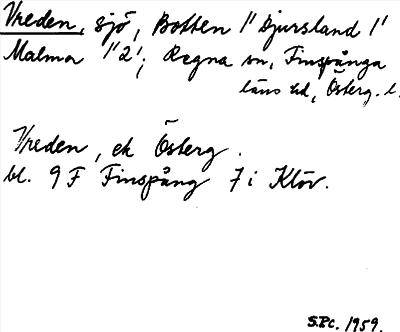 Vreden, sjö, Botten 1' Djursland 1'
Malmor 1'2'; Regna sn, Finspånga
läns hd, Österg. l.
Vreden, ek Österg.
bl. 9 F Finspång 7 i Klöv.
S.Pc. 1959.